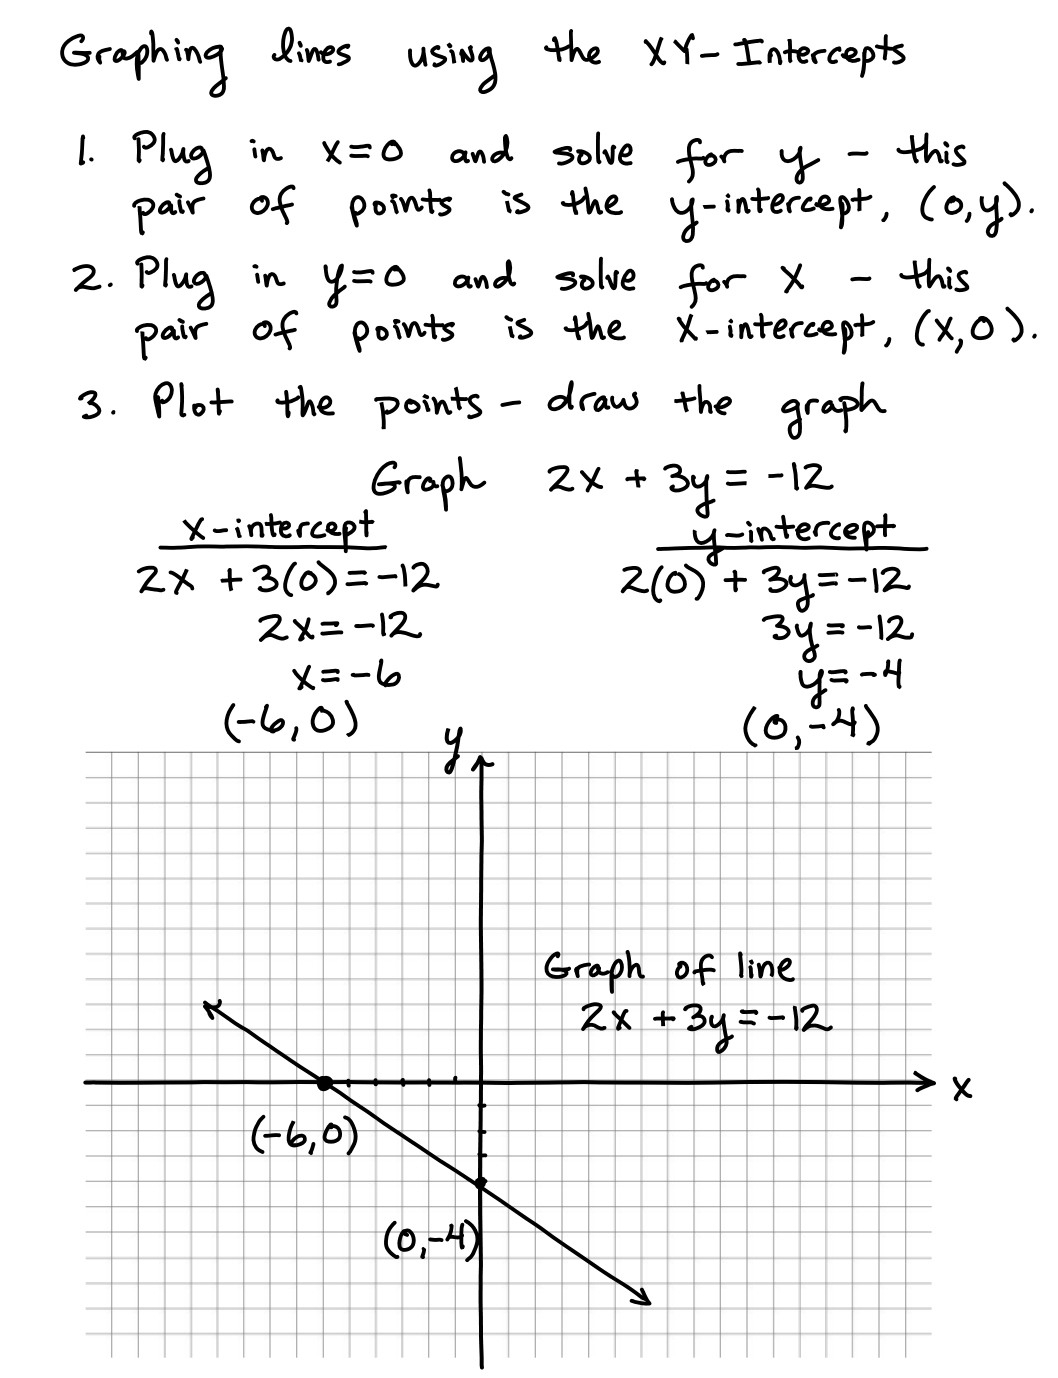 Graphing lines using the XY-Intercepts
1. Plug in x=0 and solve for y - this
pair of points is the y-intercept, (0,y).
2. Plug in y=0 and solve for x - this
pair of points is the x-intercept, (x,0).
3. Plot the points - draw the graph
Graph 2x + 3y = -12
x-intercept
2x + 3(0) = -12
2x = -12
x = -6
(-6,0)
y-intercept
2(0) + 3y = -12
3y = -12
y = -4
(0,-4)
y
Graph of line
2x + 3y = -12
x
(-6,0)
(0,-4)